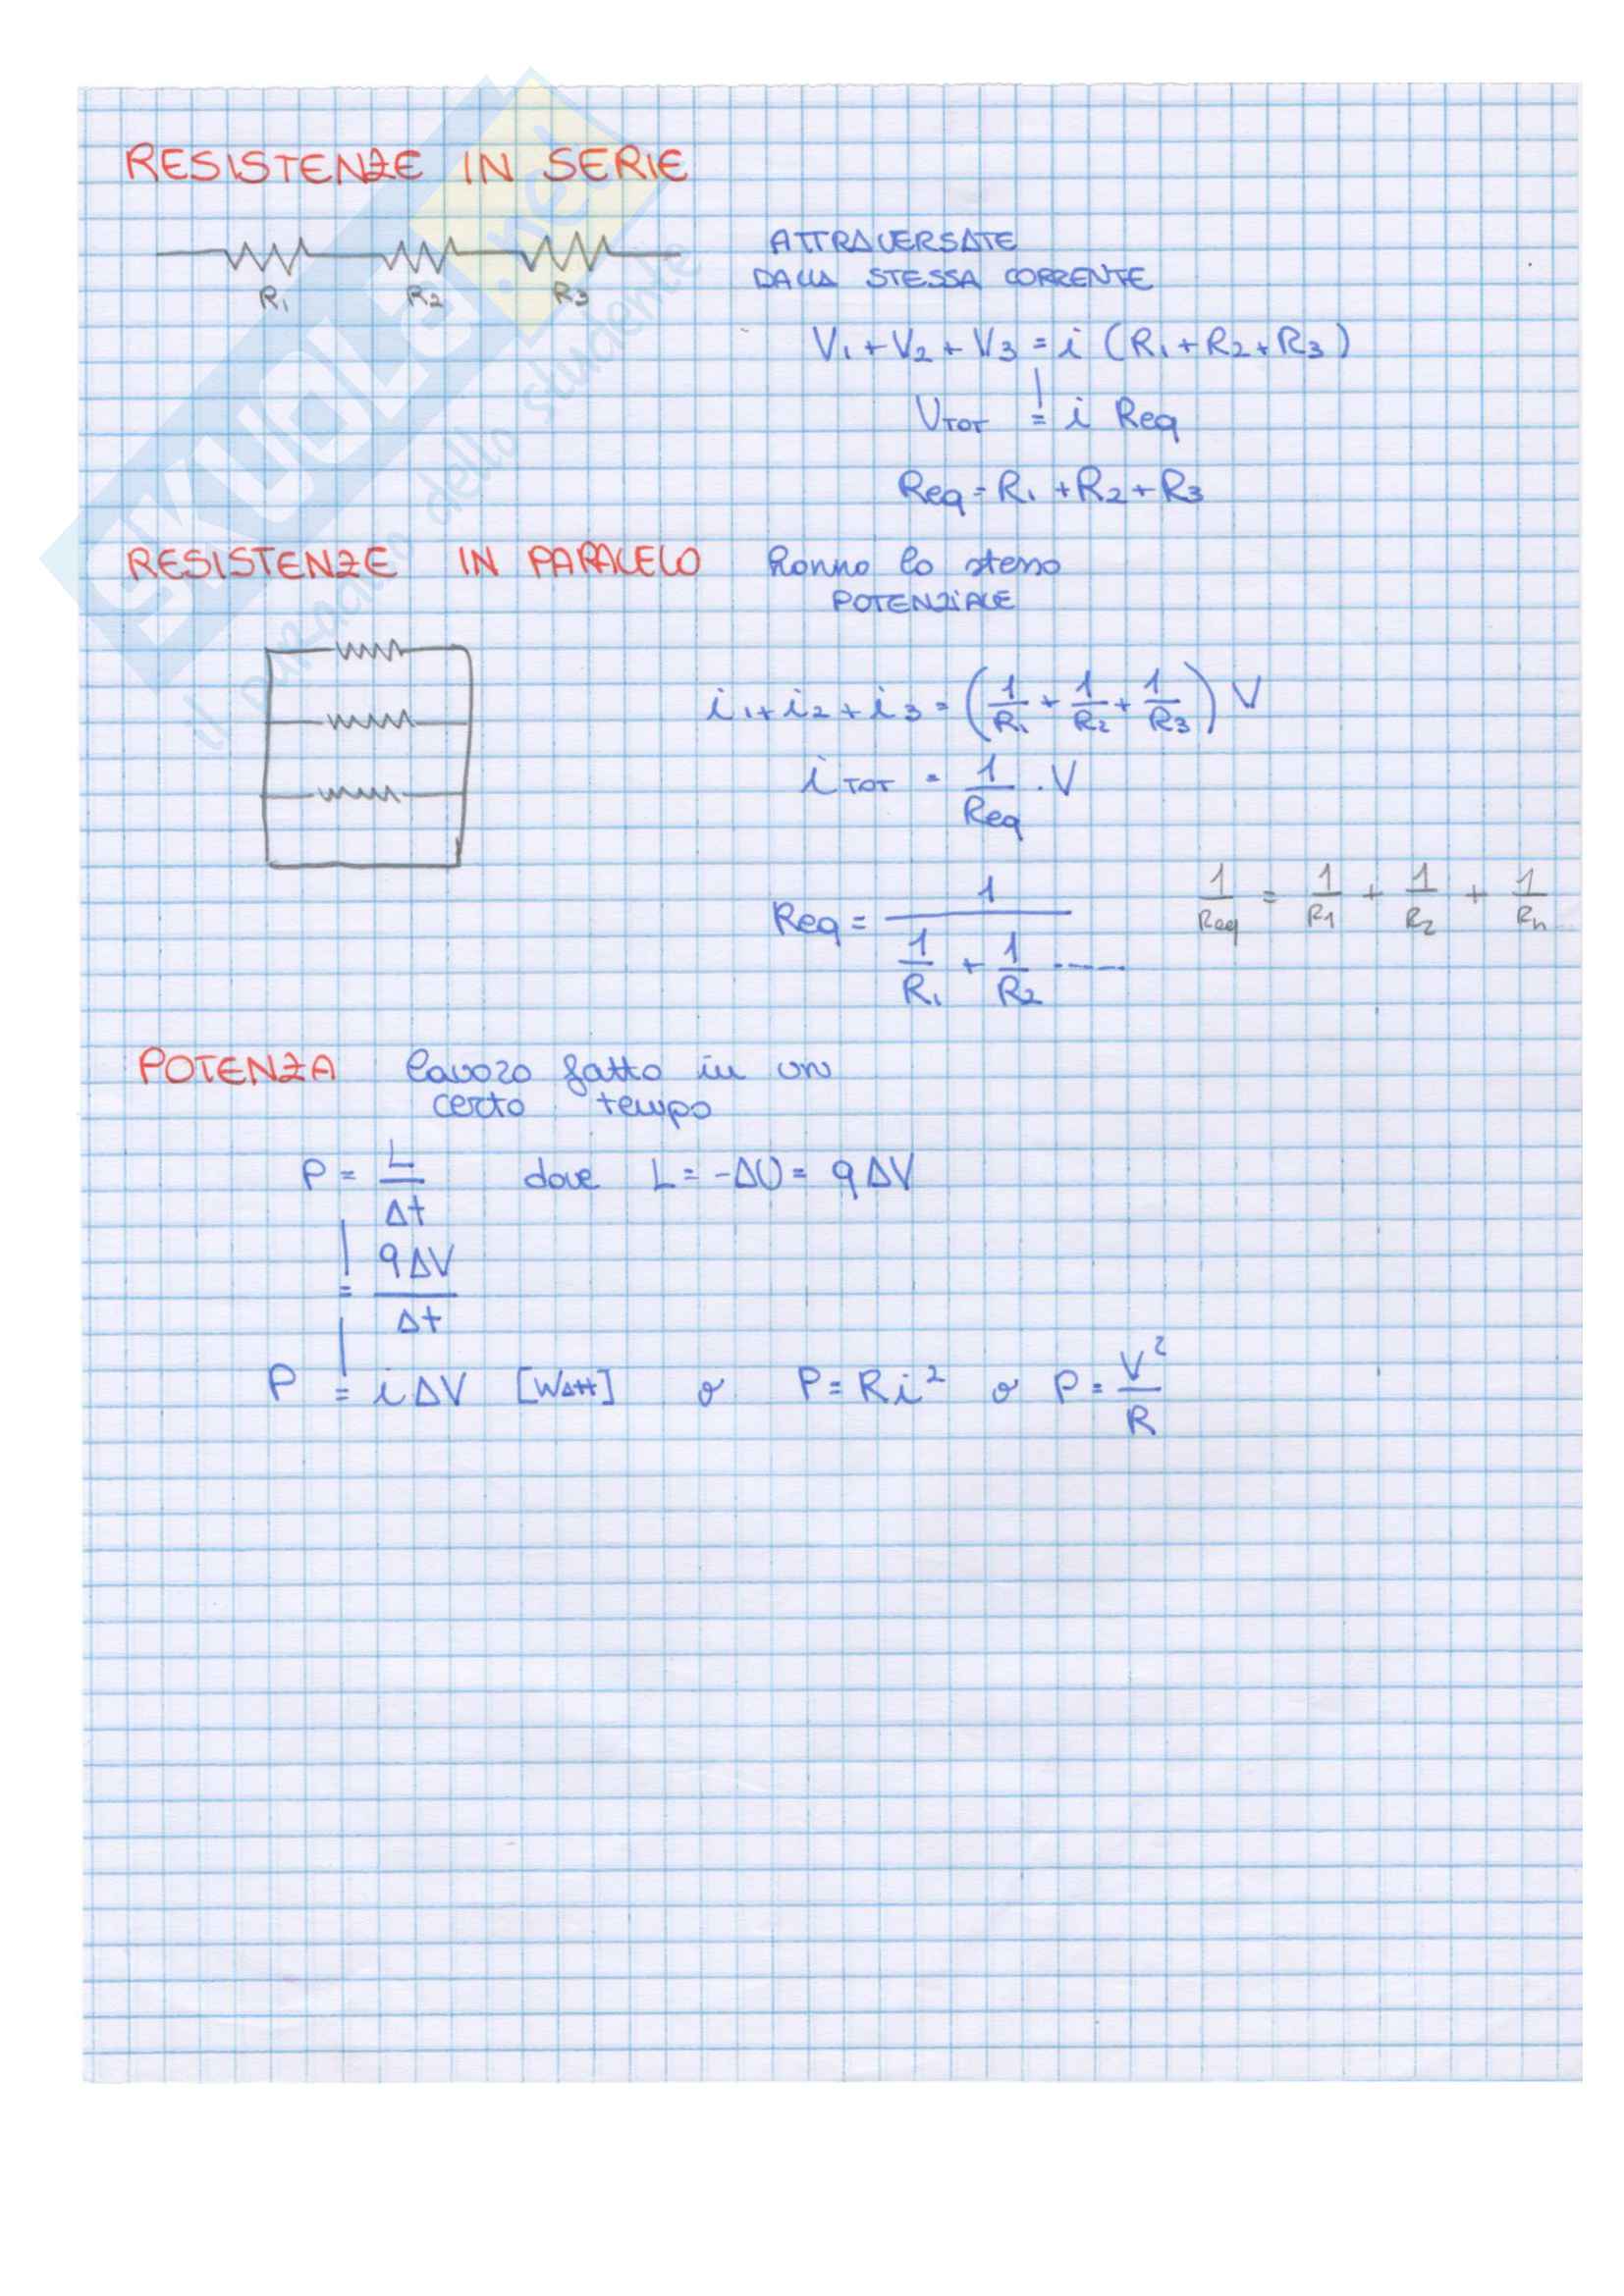 RESISTENZE IN SERIE
R₁ R₂ R₃
ATTRAVERSATE
DALLA STESSA CORRENTE
V₁ + V₂ + V₃ = i (R₁ + R₂ + R₃)
VTOT = i Req
Req = R₁ + R₂ + R₃
RESISTENZE IN PARALLELO hanno lo stesso
POTENZIALE
i₁ + i₂ + i₃ = (1/R₁ + 1/R₂ + 1/R₃) V
iTOT = 1/Req · V
Req = 1/(1/R₁ + 1/R₂ -----
1/Req = 1/R1 + 1/R2 + 1/Rn
POTENZA lavoro fatto in un
certo tempo
P = L/Δt dove L = -ΔU = qΔV
= qΔV/Δt
P = iΔV [WAtt] o P = Ri² o P = V²/R
SKUOLA.net
il paradiso dello studente